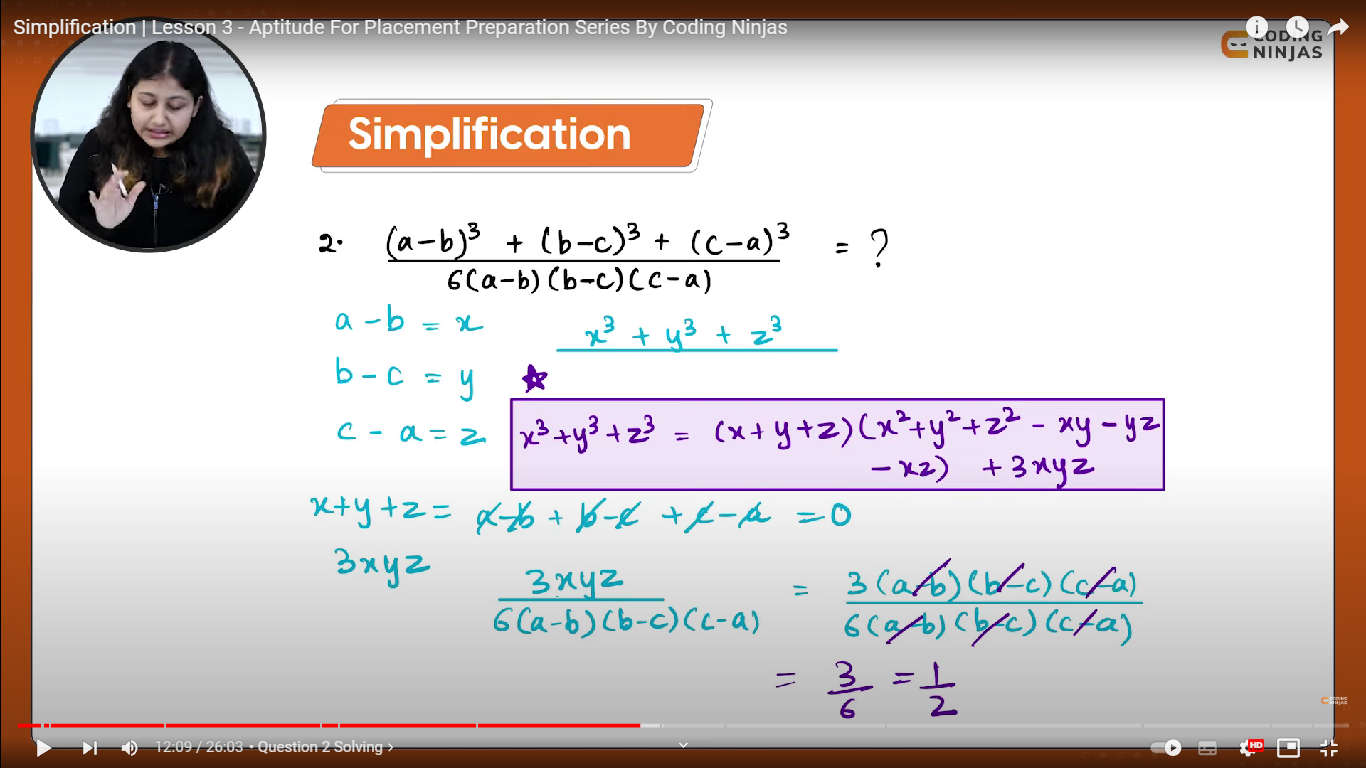 Simplification | Lesson 3 - Aptitude For Placement Preparation Series By Coding Ninjas
CODING
NINJAS
Simplification
2. (a-b)³ + (b-c)³ + (c-a)³ = ?
6(a-b)(b-c)(c-a)
a-b = x
x³ + y³ + z³
b-c = y
c-a = z
x³+y³+z³ = (x+y+z)(x²+y²+z² - xy - yz
- xz) + 3xyz
x+y+z = a-b + b-c + c-a = 0
3xyz
3xyz = 3(a-b)(b-c)(c-a)
6(a-b)(b-c)(c-a) 6(a-b)(b-c)(c-a)
= 3/6 = 1/2
CODING
NINJAS
12:09 / 26:03 • Question 2 Solving >
HD